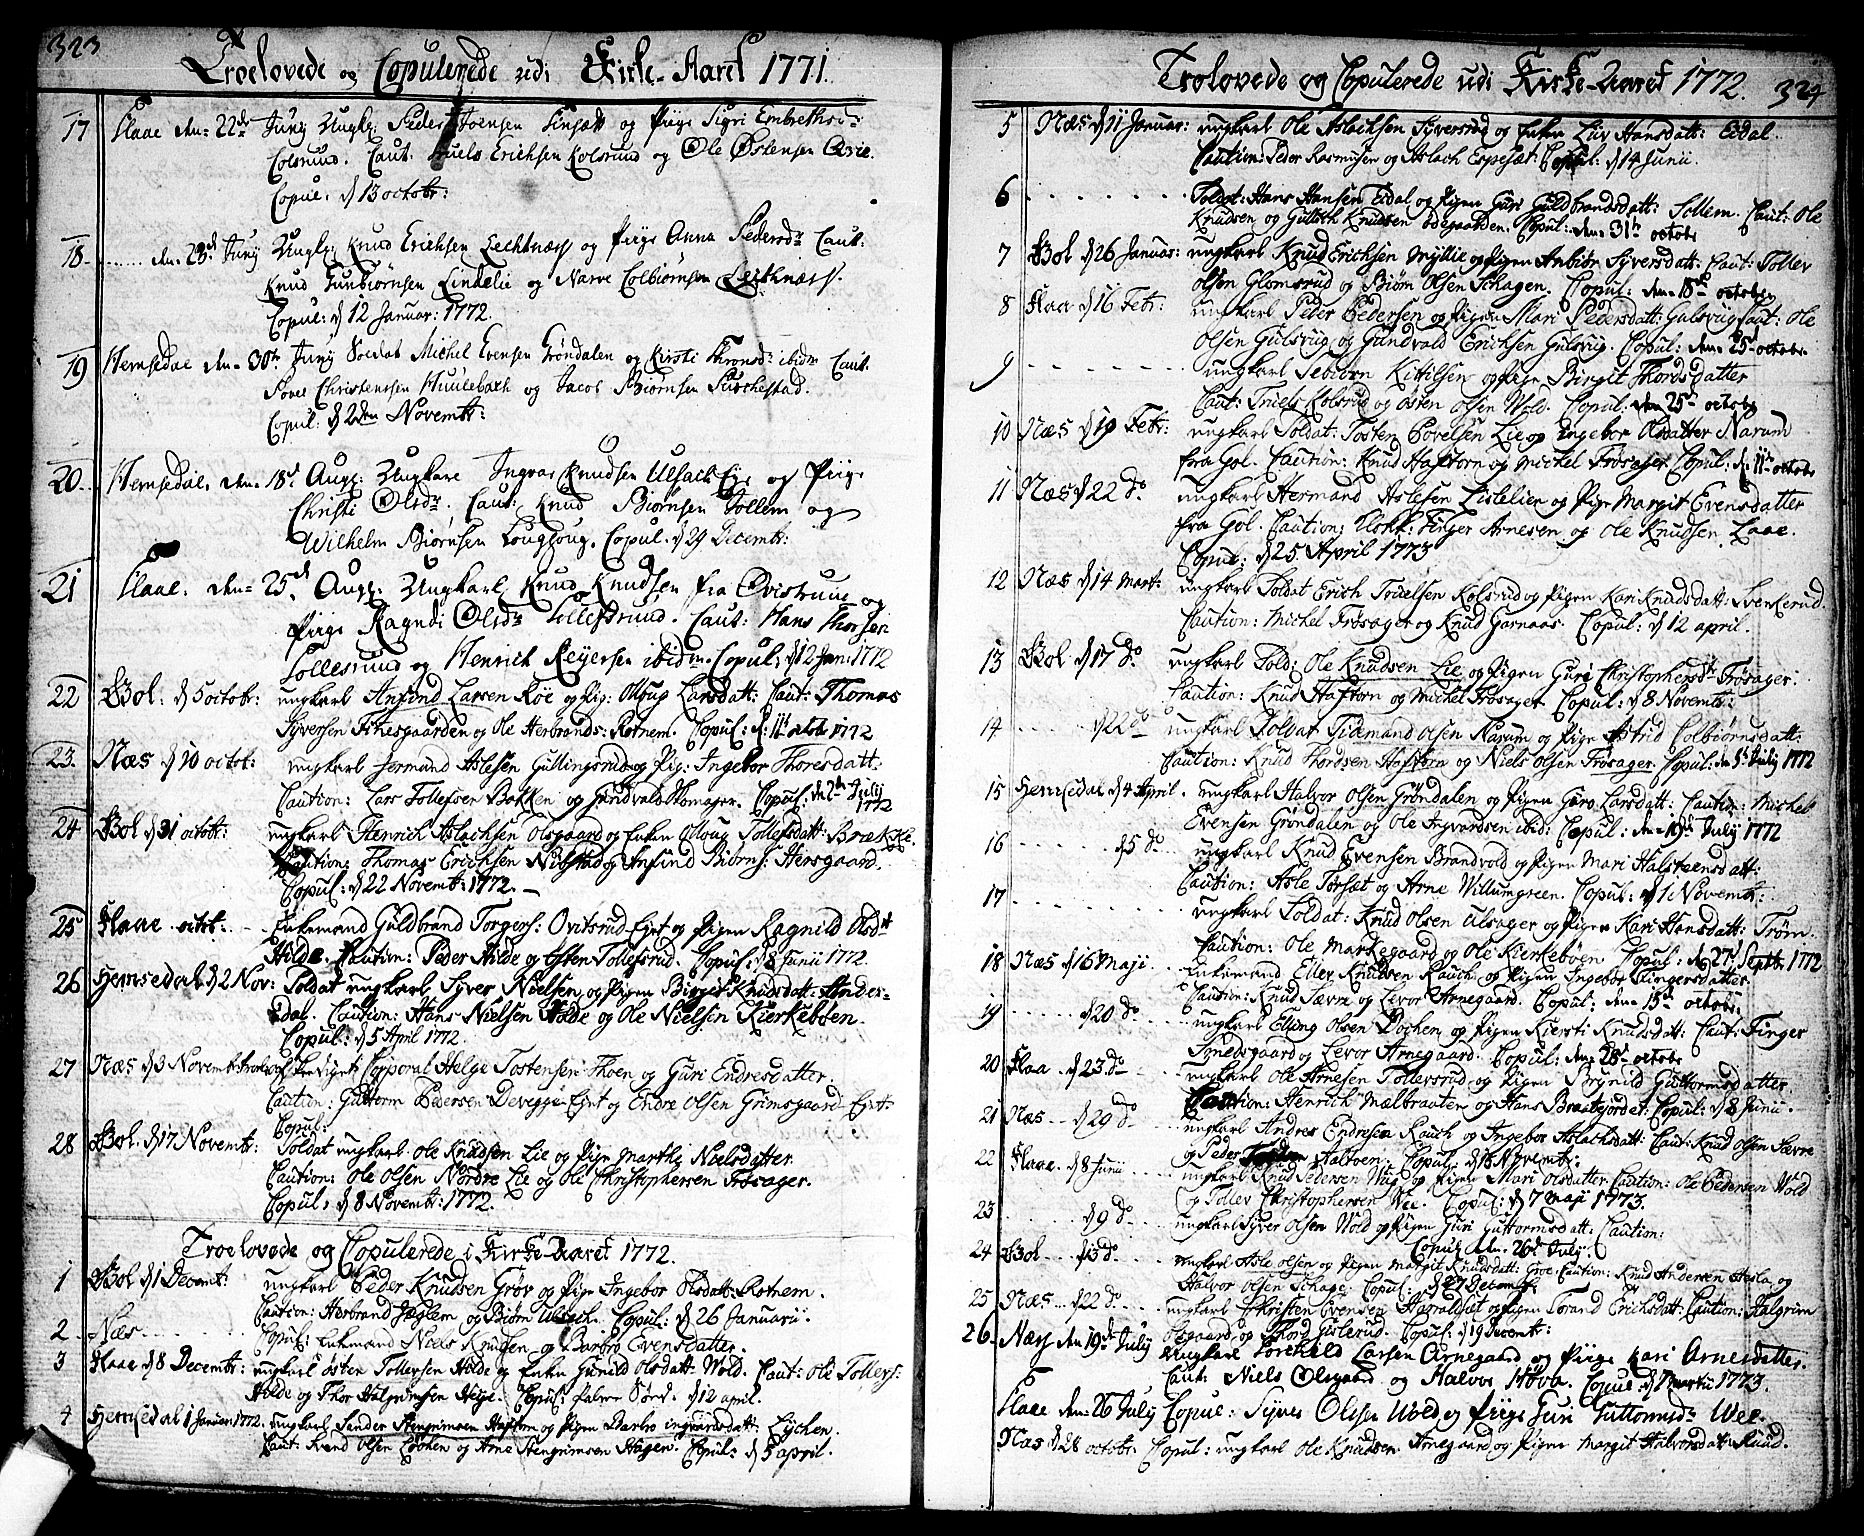 323
Troelovede og Copulerede udi Kirke-Aaret 1771.
17 Flaae den 22de Juny Ungk: Peder Joensen Finsætt og Pige Sigri Embrethsd:
Colsrund. Caut. Truels Erichsen Kolsrund og Ole Østensen Avie.
Copul. d 13 octobr:
18 ...... den 23d Juny Ungk: Knud Erichsen Lechtnæss og Pige Anna Pedersdr Caut:
Knud Gunbiørnsen Lindelie og Narve Colbiørnsen Lechnæss.
Copul: d 12 Januar: 1772.
19 Hemsedal den 30th Juny Soldat Michel Evensen Grøndalen og Kirsti Thronsd: ibidm Caut.
Povel Christensen Huulebach og Jacob Biørnsen
Copul: d 2den Novembr:
20 Hemsedal, den 18d Aug: Ungkarl Ingvar Knudsen Ulsach Eje og Pige
Christi Olsdr. Caut: Knud Biørnsen Tollem og
Wilhelm Biørnsen Copul. d 29 Decembr:
21 Flaae: den 25d Aug: Ungkarl Knud Knudsen fra og
Pige Ragndi Olsdr Tollefsrund. Caut: Hans Thorsen
Tollesrund og Henrich Reyersen ibidm. Copul: d 12 Jan: 1772
22 Gol: d 5 octobr: ungkarl Anfind Larsen Roe og Pig: Olloug Larsdatt: Caut: Thomas
Syversen Fikesgaarden og Ole Herbrands: Rotnem. Copul: d. 11t octobr 1772
23. Næs d 10 octob: ungkarl Hermand Aslesen Gullingsrud og Pig: Ingebor Thoresdatt:
Caution: Lars Tollefsen Bakken og Gundvald Thomasen. Copul: den 2den July
1772
24 Gol d 31 octob: ungkarl Henrich Aslachsen Olsgaard og Enken Olloug Tollefsdatt: Brække.
Caution: Thomas Erichsen Nubstad og Anfind Biørns: Hersgaard.
Copul: d 22 Novembr: 1772.
25 Flaae octob: Enkemand Guldbrand Torgers: Ejet og Pigen Ragnild Olsdtt
Hilde. Caution: Peder Hilde og Østen Tollefsrud. Copul: d 8 Junii 1772.
26 Hemsedal d 2 Nov: Soldat ungkarl Syver Nielsen og Pigen Birgit Knudsdatt: Anders-
Edal. Caution: Hans Nielsen Hilde og Ole Nielsen Kierkebøen.
Copul: d 5 April 1772.
27 Næs d 3 Novemb: Corporal Helge Tostensen Thoen og Guri Endresdatter.
Caution: Guttorm Pedersen Devegge Ejet og Endre Olsen Grimsgaard Ejet.
Copul:
28 Gol. d 17 Novemb: Soldat ungkarl Ole Knudsen Lie og Pige Marthe Nielsdatter
Caution: Ole Olsen Nordre Lie og Ole Christophersen Frøsager.
Copul: d 8 Novembr: 1772.
Troelovede og Copulerede i Kirke-Aaret 1772.
1 Gol d 1 Decemb: ungkarl Peder Knudsen Grøv og Pige Ingebor Olsdatt: Rotnem.
Caution: Herbrand Jæglem og Biørn Ulsach. Copul: d 26 Januarii.
2 Næs Copul: Enkemand Niels Knudsen og Barbro Evensdatter.
3 Flaae d 8 Decembr: ungkarl Østen Tollefsen Hilde og Enken Gunild Olsdatt: Wold. Caut: Ole Tollefs:
Hilde og Thor Halgrimsen Copul: d 12 april.
4 Hemsedal 1 Januar: 1772. ungkarl Sander Stengrimsen Haftorn og Pigen Barbro ingvarsdatt: Eychen.
Caut: Svend Olsen Eychen og Arne Stengrimsen Skagen. Copul: d 5 april.
Trolovede og Copulerede udi Kirke-Aaret 1772. 324
5 Næs d 11 Januar: ungkarl Ole Aslachsen Syversrud og Enken Liv Hansdatt: Eidal.
Caution: Peder Rasmusen og Aslach Espesæt. Copul: d 14 Junii.
6 Soldat: Hans Hansen Eidal og Pigen Guri Guldbrandsdatt: Tollem. Caut: Ole
Knudsen og Gulbrich Knudsen Ødegaarden. Copul: den 31t octobr
7 Gol d 26 Januar: ungkarl Knud Erichsen Myllie og Pigen Anbiør Syversdatt: Caut: Tollev
Olsen Glomsrud og Biørn Olsen Schagen. Copul: den 18t octobr
8 Flaa d 16 Febr: ungkarl Peder Pedersen og Pigen Mari Pedersdatt: Gulsvig Caut: Ole
Olsen Gulsvig og Gundvald Erichsen Gulsvig. Copul: den 25 octobr
9 ungkarl Tebiørn Kittilsen og Pige Birgit Thordsdatter
Caut: Truels Kolsrud og Østen Olsen Wold. Copul: den 25 octobr
10 Næs d 19 Febr: ungkarl Soldat: Tosten Povelsen Lie og Ingebor Olsdatter Narum
fra Gol. Caution: Knud Haftorn og Michel Frøsager Copul: d 11t octobr
11 Næs d 22 do ungkarl Hermand Aslesen Lislelien og Pige Margit Evensdatter
fra Gol. Caution: Klokk: Finger Arnesen og Ole Knudsen Laae.
Copul: d 25 April 1773
12 Næs d 14 Mart: ungkarl Soldat Erich Truelsen Kolsrud og Pigen Kari Knudsdatt: Svenkerud.
Caution: Michel Frøsager og Knud Garnaas. Copul: d 12 april.
13 Gol d 17 do ungkarl Sold: Ole Knudsen Lie og Pigen Guri Christophersdr Frøsager.
Caution: Knud Haftorn og Michel Frøsager Copul: d 8 Novembr:
14 d 22 do ungkarl Soldat Tidemand Olsen Narum og Pige Astrid Colbiørnsdatt:
Caution: Knud Thordsen Haftorn og Niels Olsen Frøsager. Copul: den 5t July 1772
15 Hemsedal d 4 April. ungkarl Halvor Olsen Grøndalen og Pigen Guro Larsdatt: Caution: Michel
Evensen Grøndalen og Ole Ingvardsen ibid: Copul: den 19de July 1772
16 d 5 do ungkarl Knud Evensen Brandvold og Pigen Mari Halsteensdatt:
Caution: Asle Torset og Arne Willumgreen. Copul: d 1 Novembr:
17 ungkarl Soldat: Knud Olsen Ulsager og Pigen Kari Hansdatt: Trøm.
Caution: Ole Markegaard og Ole Kierkebøen. Copul: d 27t Septbr 1772
18 Næs d 16 Maji Enkemand Ellev Knudsen Rauch og Pigen Ingebor Fingersdatter.
Caution: Knud Sævre og Levor Arnegaard. Copul: den 15t octobr.
19 d 20 do ungkarl Elling Olsen Dochen og Pigen Kiersti Knudsdatt: Caut: Finger
Tonedsgaard og Levor Arnegaard. Copul: den 28t octobr
20 Flaa d 23 do ungkarl Ole Arnesen Tollefsrud og Pigen Brynild Guttormsdatter
Caution: Henrich Mælbraaten og Hans Braatejordet: Copul: d 8 Junii.
21 Næs d 29 do ungkarl Andres Endresen Rauch og Ingebor Aslachsdatt: Caut: Knud Olsen Sævre
og Peder Aaltoen. Copul: d 15 Novembr:
22 Flaae. d 8 Junii ungkarl Knud Petersen og Pigen Mari Olsdatter. Caution: Ole Pedersen Wold
og Tollev Christophersen Wee. Copul: d 7 Maji 1773.
23 d 9 do ungkarl Syver Olsen Wold og Pigen Guri Guttormsdatt: Caution:
Copul: den 26de July.
24 Gol d 13 do ungkarl Asle Olsen og Pigen Margit Knudsdatt: Groe. Caution: Knud Andersen Hesla og
Halvor Olsen Schage Copul: d 27 Decembr
25 Næs d 22 do ungkarl Christen Evensen Haraldset og Pigen Torand Eriksdatt: Caution: Halgrim
Olsgaard og Thord Gislerud. Copul: d 19 Decembr:
26. Næss den 19de July Ungkarl Torchild Larsen Arnegaard og Pige Kari Arnesdatter.
Caut: Niels Olsgaard og Halvor Hova. Copul: d 7 Martii 1773.
Flaae den 26 July Copul: Syver Olsen Wold og Pige Guri Guttormsdr Wee.
Næs d 28 octobr Copul: ungkarl Ole Knudsen Arnegaard og Pigen Margit Halvorsdatt: Ruud.